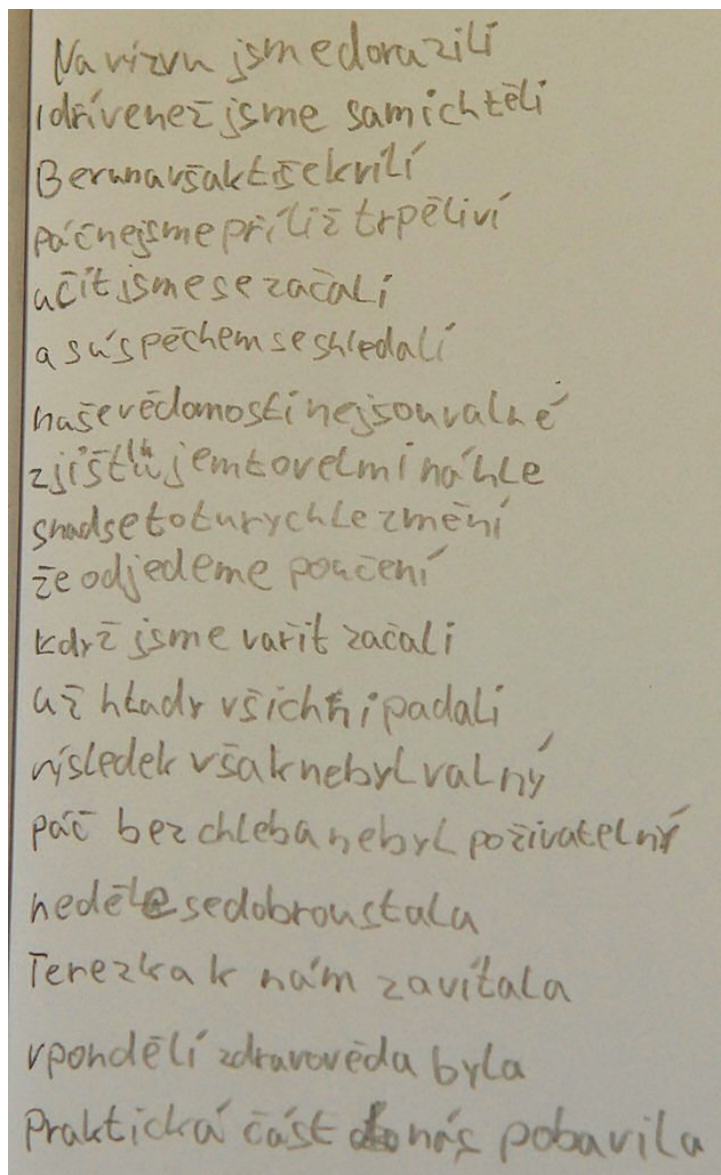 Na výzvu jsme dorazili
i dřív než jsme sami chtěli
Beruna však tiše kvílí
páč nejsme příliž trpěliví
učit jsme se začali
a s úspěchem se shledali
naše vědomosti nejsou valné
zjišťujem to velmi náhle
snad se to tu rychle změní
že odjedeme poučení
když jsme vařit začali
už hlady všichni padali
výsledek však nebyl valný
páč bez chleba nebyl poživatelný
neděle se dobrou stala
Terezka k nám zavítala
v pondělí zdravověda byla
Praktická část nás pobavila